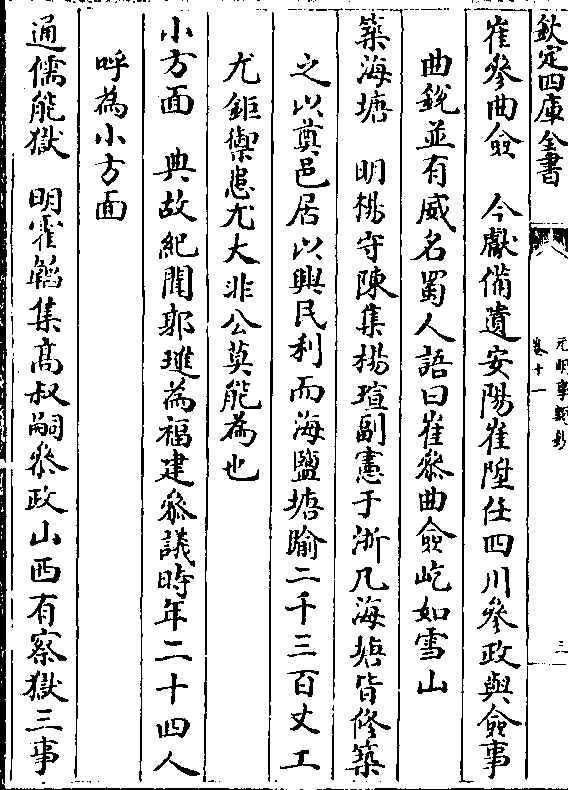 欽定四庫全書
元明事類鈔
卷十一
三
崔參曲僉　今獻備遺安陽崔陞任四川參政與僉事
曲銳並有威名蜀人語曰崔參曲僉屹如雪山
築海塘　明楊守陳集楊瑄副憲于浙凡海塘皆修築
之以奠邑居以興民利而海鹽塘踰二千三百丈工
尤鉅禦患尤大非公莫能為也
小方面　典故紀聞郭璡為福建參議時年二十四人
呼為小方面
通儒能獄　明霍韜集髙叔嗣參政山西有察獄三事